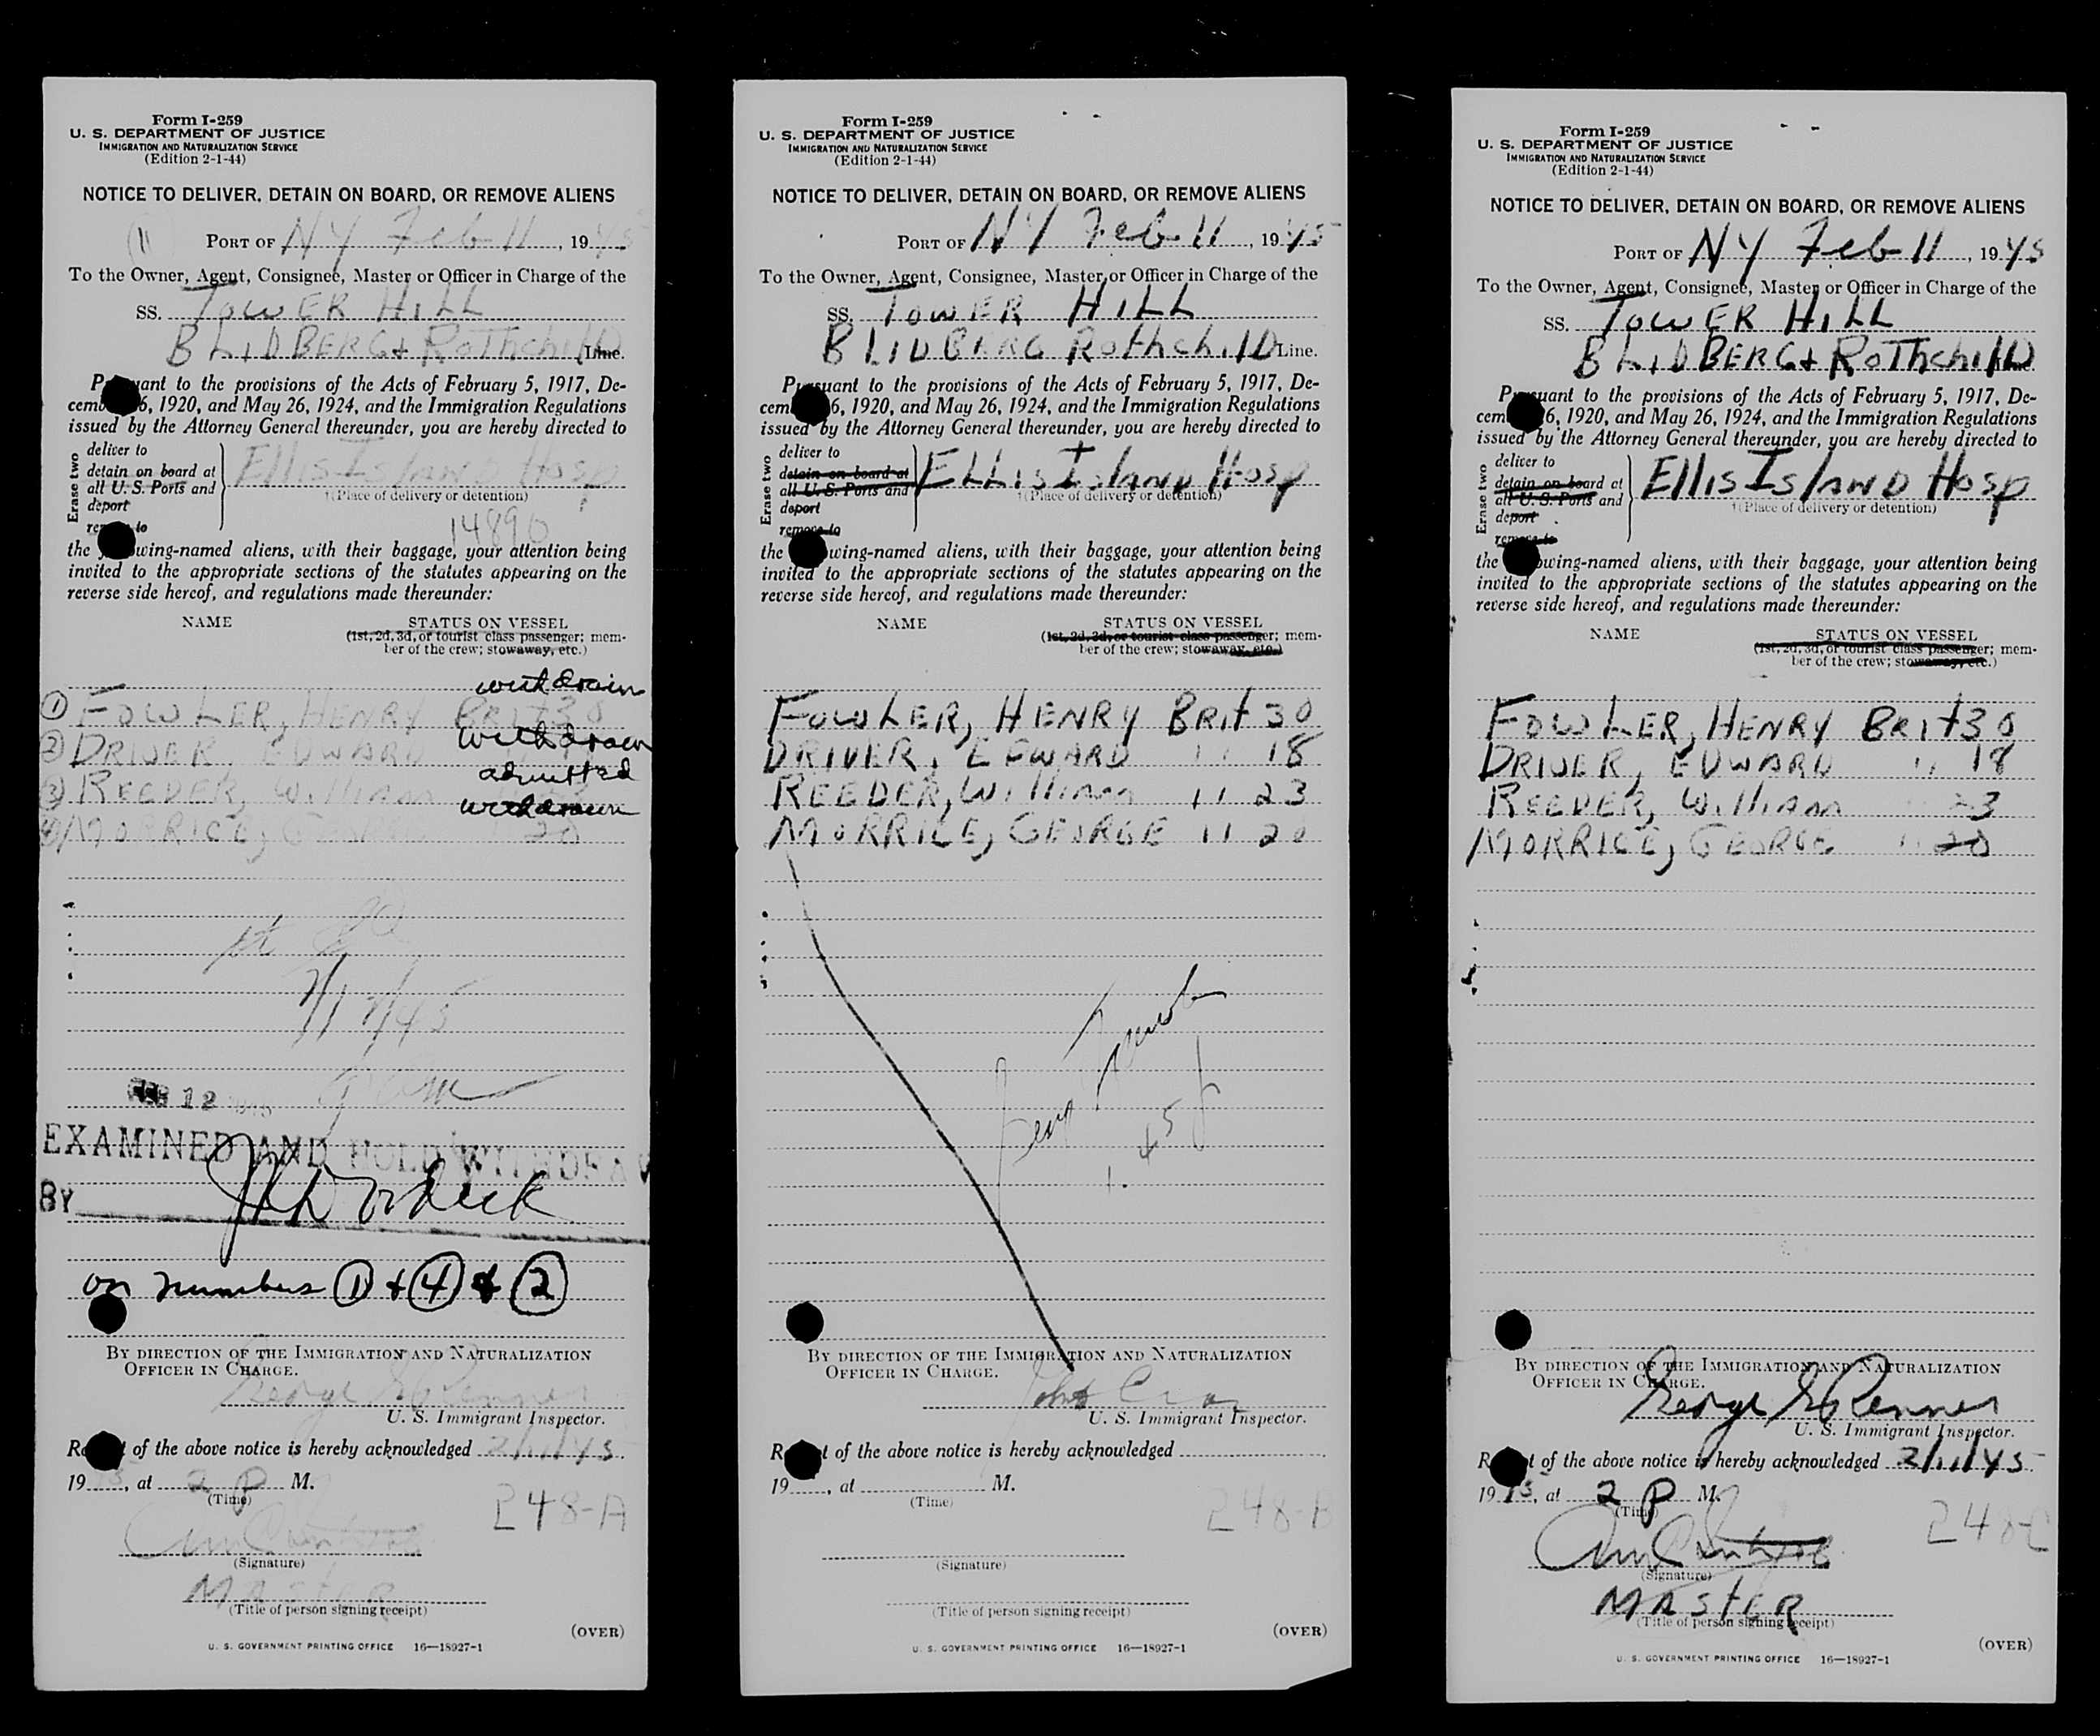 Form I-259
U. S. DEPARTMENT OF JUSTICE
IMMIGRATION AND NATURALIZATION SERVICE
(Edition 2-1-44)
NOTICE TO DELIVER, DETAIN ON BOARD, OR REMOVE ALIENS
PORT OF NY Feb 11, 1945
To the Owner, Agent, Consignee, Master or Officer in Charge of the
SS. TOWER HILL
BLIDBERG + ROTHCHILD Line.
Pursuant to the provisions of the Acts of February 5, 1917, De-
cember 6, 1920, and May 26, 1924, and the Immigration Regulations
issued by the Attorney General thereunder, you are hereby directed to
Erase two
deliver to
detain on board at
all U. S. Ports and
deport
remove to
Ellis Island Hosp
(Place of delivery or detention)
14890
the following-named aliens, with their baggage, your attention being
invited to the appropriate sections of the statutes appearing on the
reverse side hereof, and regulations made thereunder:
NAME STATUS ON VESSEL
(1st, 2d, 3d, or tourist class passenger; mem-
ber of the crew; stowaway, etc.)
withdrawn
1 FOWLER, HENRY BRIT 30
withdrawn
2 DRIVER, EDWARD
admitted
3 REEDER, William
withdrawn
4 MORRICE, GEORGE 20
FEB 12 1945
EXAMINED AND HOLD WITHDRAW
BY
on numbers 1 + 4 & 2
BY DIRECTION OF THE IMMIGRATION AND NATURALIZATION
OFFICER IN CHARGE.
George S Renner
U. S. Immigrant Inspector.
Receipt of the above notice is hereby acknowledged 2/11/45
1945, at 2 P M.
(Time)
248-A
(Signature)
MASTER
(Title of person signing receipt)
(OVER)
U. S. GOVERNMENT PRINTING OFFICE 16—18927-1
Form I-259
U. S. DEPARTMENT OF JUSTICE
IMMIGRATION AND NATURALIZATION SERVICE
(Edition 2-1-44)
NOTICE TO DELIVER, DETAIN ON BOARD, OR REMOVE ALIENS
PORT OF NY Feb 11, 1945
To the Owner, Agent, Consignee, Master or Officer in Charge of the
SS. TOWER HILL
BLIDBERG Rothchild Line.
Pursuant to the provisions of the Acts of February 5, 1917, De-
cember 6, 1920, and May 26, 1924, and the Immigration Regulations
issued by the Attorney General thereunder, you are hereby directed to
Erase two
deliver to
detain on board at
all U. S. Ports and
deport
remove to
ELLIS Island Hosp
(Place of delivery or detention)
the following-named aliens, with their baggage, your attention being
invited to the appropriate sections of the statutes appearing on the
reverse side hereof, and regulations made thereunder:
NAME STATUS ON VESSEL
(1st, 2d, 3d, or tourist class passenger; mem-
ber of the crew; stowaway, etc.)
FOWLER, HENRY BRIT 30
DRIVER, EDWARD 11 18
REEDER, William 11 23
MORRICE, GEORGE 11 20
BY DIRECTION OF THE IMMIGRATION AND NATURALIZATION
OFFICER IN CHARGE.
U. S. Immigrant Inspector.
Receipt of the above notice is hereby acknowledged
19, at M.
(Time)
248-B
(Signature)
(Title of person signing receipt)
(OVER)
U. S. GOVERNMENT PRINTING OFFICE 16—18927-1
Form I-259
U. S. DEPARTMENT OF JUSTICE
IMMIGRATION AND NATURALIZATION SERVICE
(Edition 2-1-44)
NOTICE TO DELIVER, DETAIN ON BOARD, OR REMOVE ALIENS
PORT OF NY Feb 11, 1945
To the Owner, Agent, Consignee, Master or Officer in Charge of the
SS. TOWER HILL
BLIDBERG + ROTHCHILD
Pursuant to the provisions of the Acts of February 5, 1917, De-
cember 6, 1920, and May 26, 1924, and the Immigration Regulations
issued by the Attorney General thereunder, you are hereby directed to
Erase two
deliver to
detain on board at
all U. S. Ports and
deport
remove to
Ellis Island Hosp
(Place of delivery or detention)
the following-named aliens, with their baggage, your attention being
invited to the appropriate sections of the statutes appearing on the
reverse side hereof, and regulations made thereunder:
NAME STATUS ON VESSEL
(1st, 2d, 3d, or tourist class passenger; mem-
ber of the crew; stowaway, etc.)
FOWLER, HENRY BRIT 30
DRIVER, EDWARD 11 18
REEDER, William 23
MORRICE, GEORGE 11 20
BY DIRECTION OF THE IMMIGRATION AND NATURALIZATION
OFFICER IN CHARGE.
George S Renner
U. S. Immigrant Inspector.
Receipt of the above notice is hereby acknowledged 2/11/45
1945, at 2 P M.
(Time)
248-C
(Signature)
MASTER
(Title of person signing receipt)
(OVER)
U. S. GOVERNMENT PRINTING OFFICE 16—18927-1